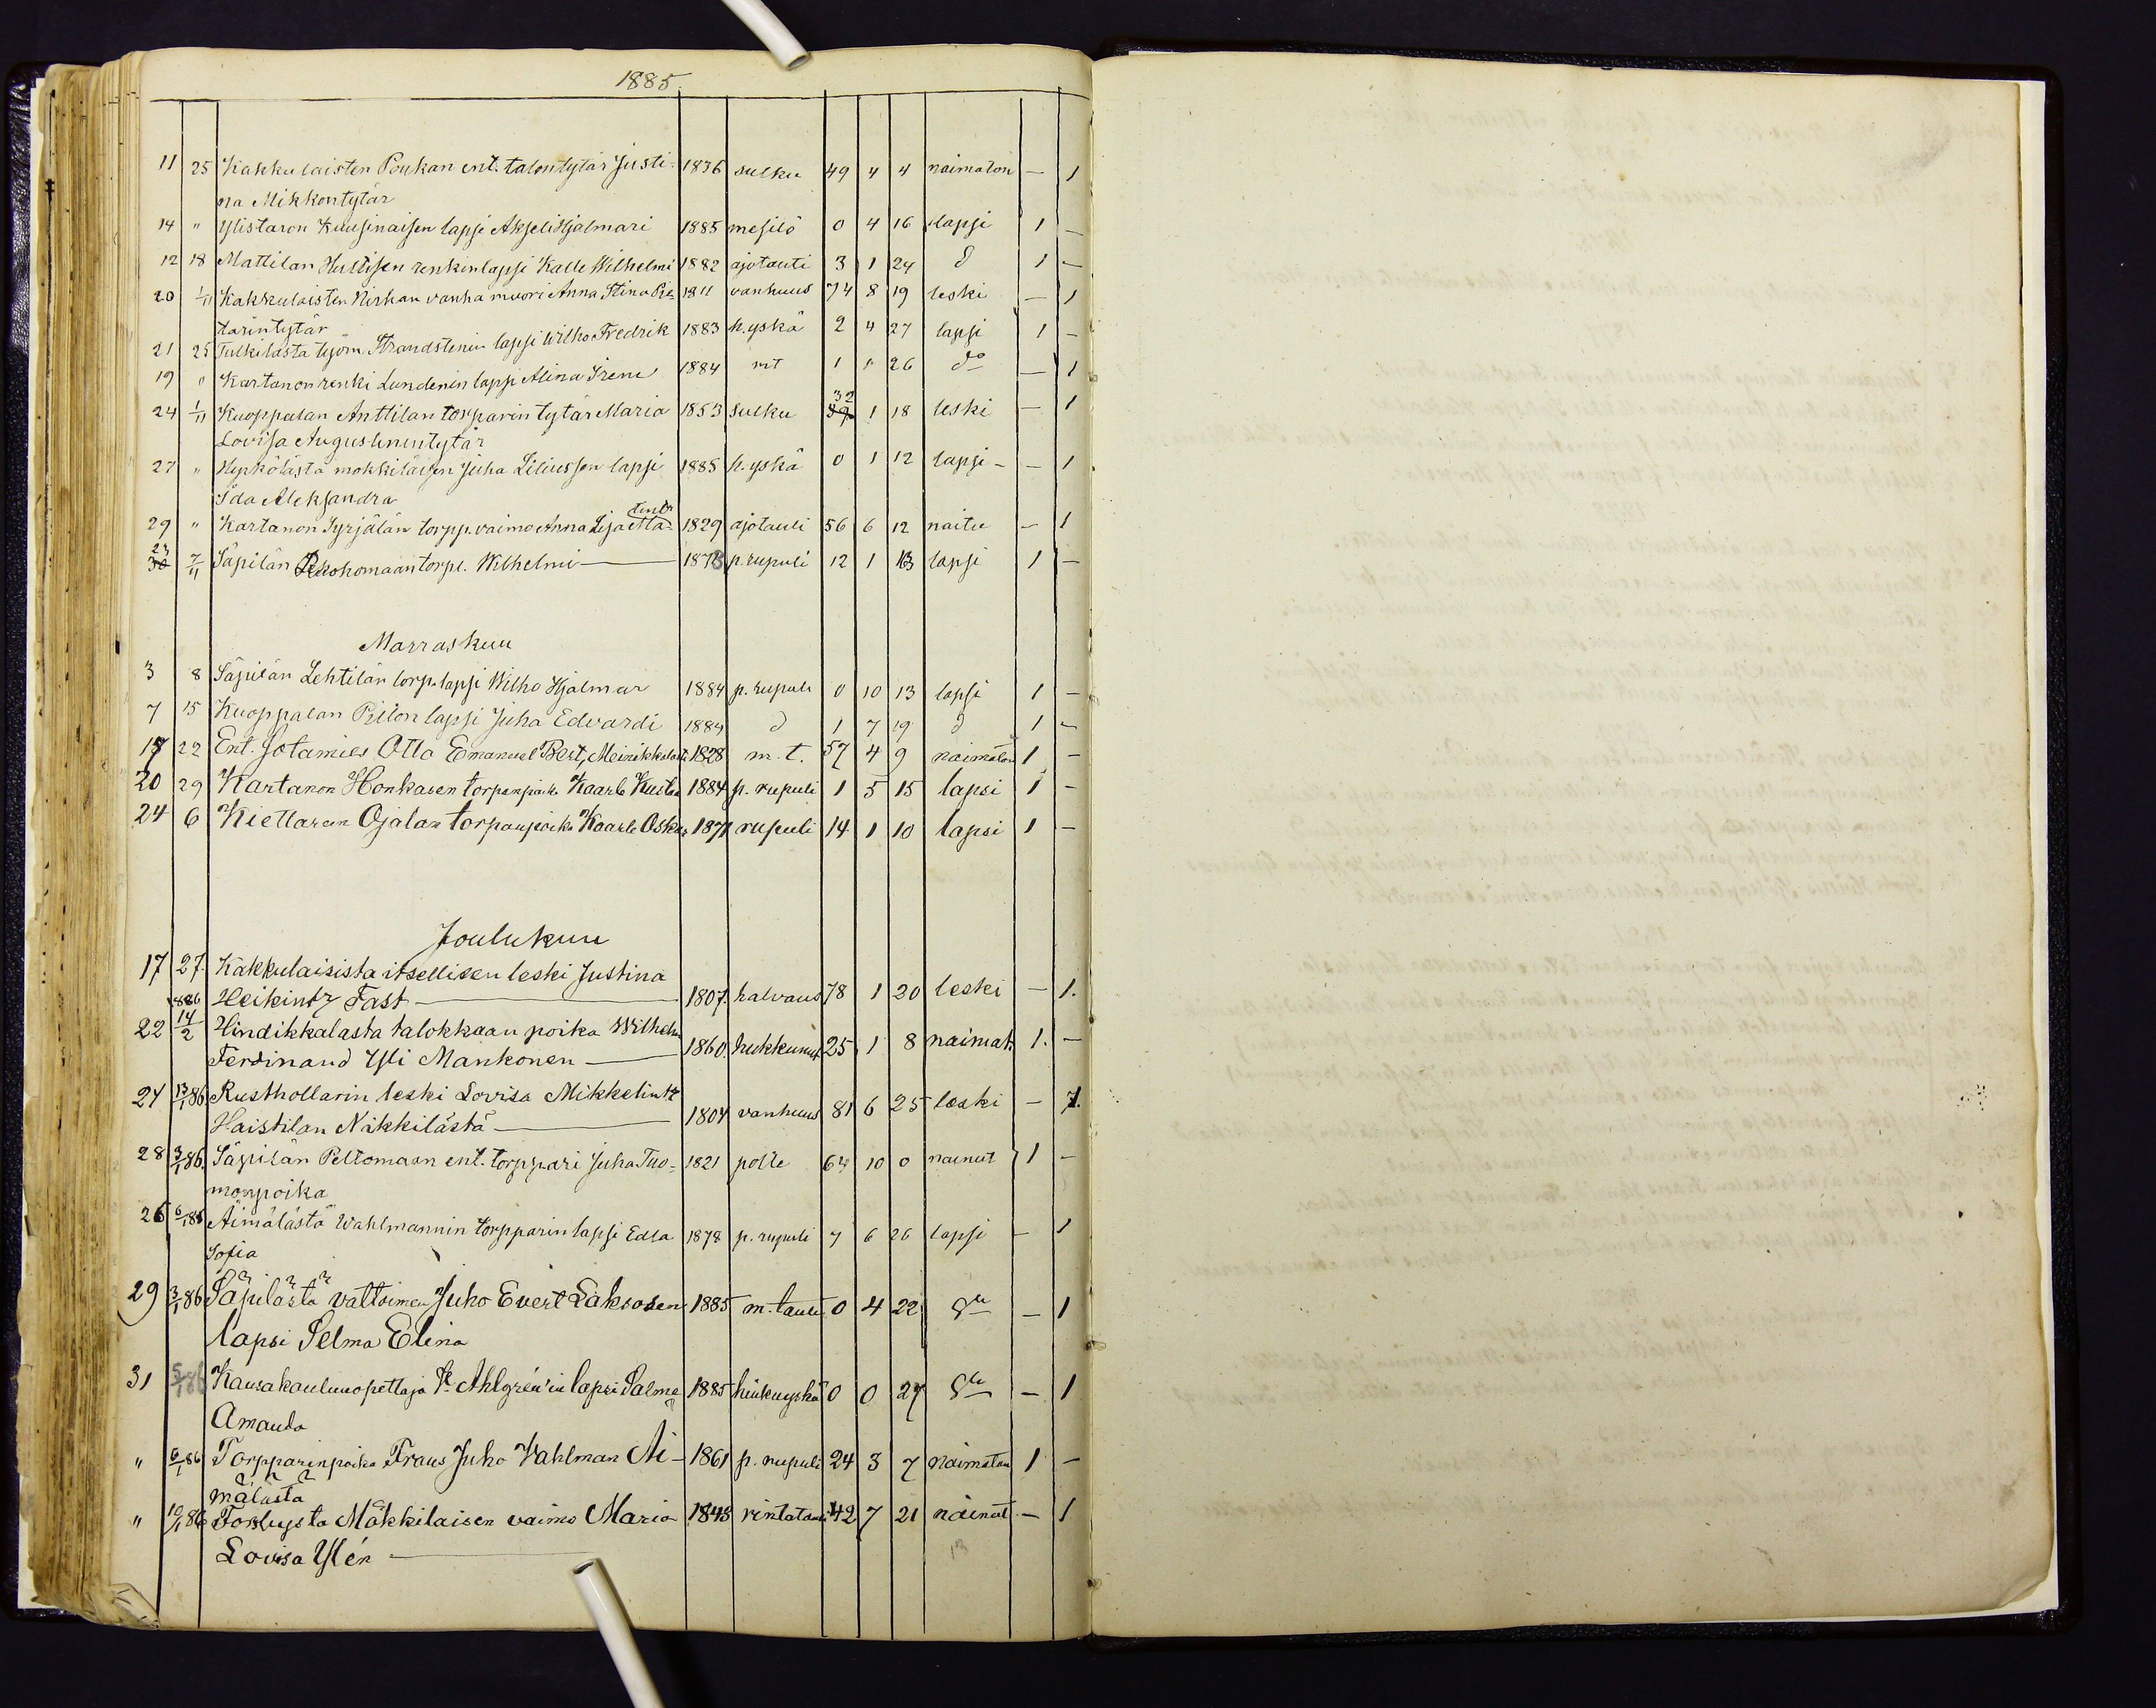 1885
11 25 Kakkulaisten Poukan ent. talontytär Justi- 1836 sulku 49 4 4 naimaton — 1
na Mikkontytär
14 " Ylistaron Kuusinaisen lapsi Akseli Hjalmari 1885 0 4 16 lapsi 1 —
12 18 Mattilan Hultisen renkinlapsi Kalle Wilhelmi 1882 ajotauti 3 1 24 d 1 —
20 1/11 Kakkulaisten Nirkan vanha muori Anna Stina 1811 vanhuus 74 8 19 leski — 1
tarintytär
21 25 Tulkilasta työm. Strandstenin lapsi Wilho Fredrik 1883 h. yskä 2 4 27 lapsi 1 —
19 " Kartanon renki Lundenin lapsi Alina Irene 1884 mt 1 1 26 do — 1
24 1/11 Kuoppalan Anttilan torparin tytär Maria 1853 sulku 32 1 18 leski — 1
Lovisa Augustinintytär
27 " Hyrkölästä mökkiläisen Juha Liliussen lapsi 1885 h. yskä 0 1 12 lapsi — — 1
Ida Aleksandra
29 " Kartanon Syrjälän torpp. vaimo Anna Lisa 1829 ajotauti 56 6 12 naitu — 1
23 7/11 Säpilän torpl. Wilhelmi — 1873 p. rupuli 12 1 13 lapsi 1 —
Marraskuu
3 8 Säpilän Lehtilän torp. lapsi Wilho Hjalmar 1884 p. rupuli 0 10 13 lapsi 1 —
7 15 Kuoppalan Piilon lapsi Juha Edvardi 1884 d 1 7 19 d 1 —
17 22 Ent. Sotamies Otto Emanuel Best, 1828 m. t. 57 4 9 naimaton 1 —
20 29 Kartanon Honkasen torpanpoika Kaarle Kustaa 1884 p. rupuli 1 5 15 lapsi 1 —
24 6 Kiettaren Ojalan torpanpoika Kaarle Oskar 1871 rupuli 14 1 10 lapsi 1 —
Joulukuu
17 27. Kakkulaisista itsellisen leski Justina
Heikintr Fast — 1807. halvaus 78 1 20 leski — 1.
22 1886 14/2 Hindikkalasta talokkaan poika Wilhelm
Ferdinand Yli Mankonen — 1860. hukkunut 25 1 8 naimat. 1. —
24 13/1 86 Rusthollarin leski Lovisa Mikkelintr
Haistilan Näkkilästä — 1804 vanhuus 81 6 25 leski — 1.
28 3/1 86. Säpilän Peltomaan ent. torppari Juha Tuo- 1821 polte 64 10 0 nainut 1 —
monpoika
26 6/1 86 Äimälästä Wahlmannin torpparin lapsi Edla 1878 p. rupuli 7 6 26 lapsi — 1
Sofia
29 3/1 86 Säpilästä valtoimen Juho Evert Laksosen 1885 m. tauti 0 4 22 — 1
lapsi Selma Elina
31 5/1 86 Kansakoulunopettaja K. Ahlgrén'in lapsi Salma 1885 hinkuyskä 0 0 27 — 1
Amanda
" 6/1 86 Torpparinpoika Frans Juho Wahlman Äi- 1861 p. rupuli 24 3 7 naimaton 1 —
mälästä
" 10/1 86 Mäkkilaisen vaimo Maria 1843 rintatauti 42 7 21 nainut — 1
Lovisa Ylén —
13